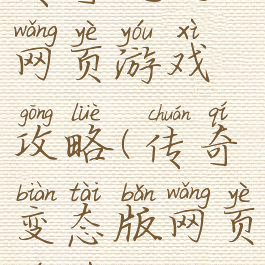 wǎng yè yóu xì
网页游戏
gōng lüè chuán qí
攻略(传奇
biàn tài bǎn wǎng yè
变态版网页